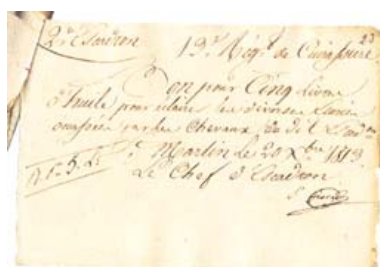 23
2e Escadron 13e Régt de Cuirassiers
Bon pour Cinq Livres
d'huile pour éclairer les diverses
par les Chevaux du dit Escadron
à Martin le 20 Xbre 1813
Le Chef d'Escadron